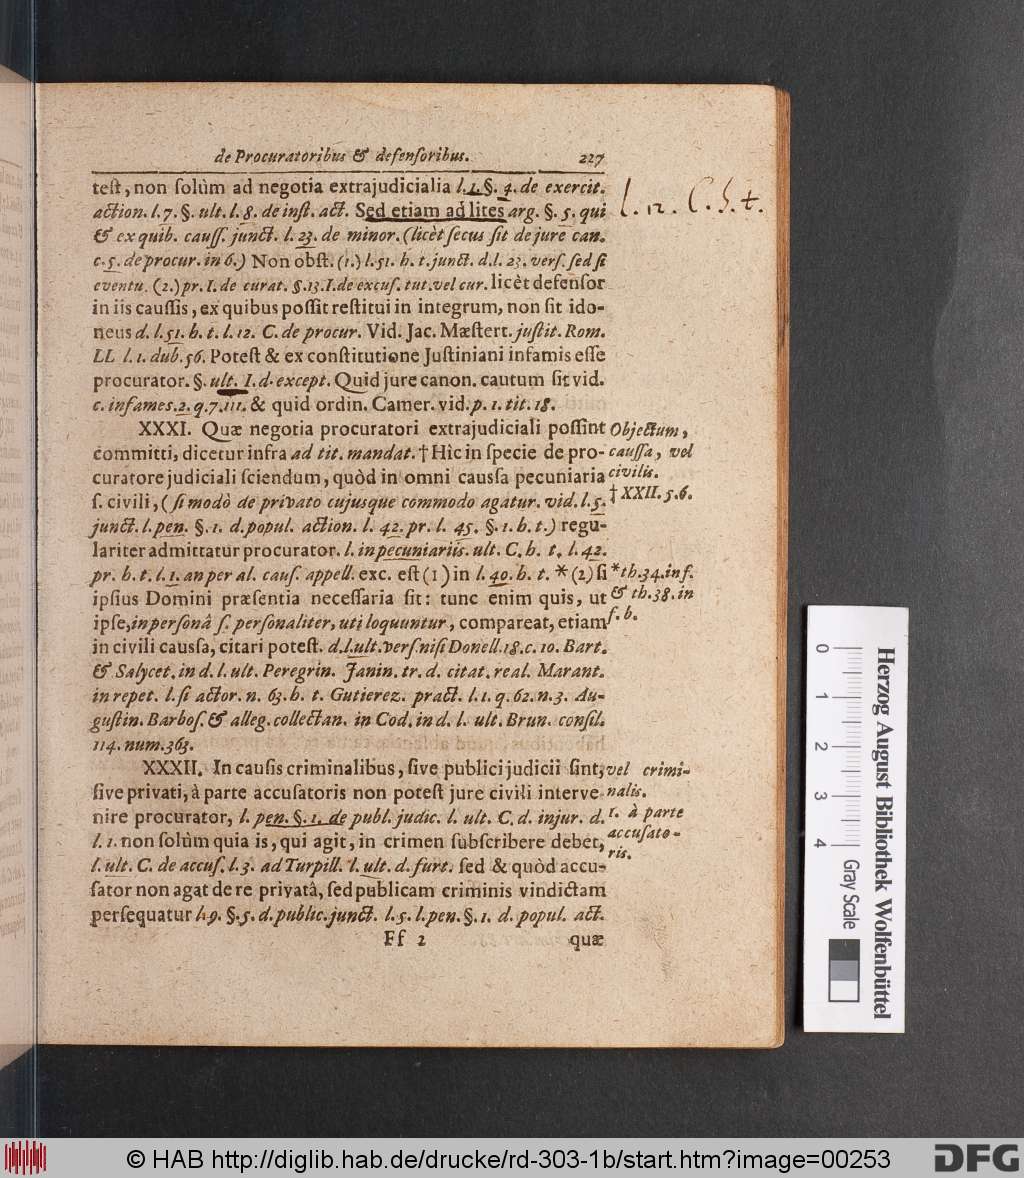 de Procuratoribus & defenſoribus. 227
teſt, non ſolùm ad negotia extrajudicialia l. 1. §. 4. de exercit.
action. l. 7. §. ult. l. 8. de inſt. act. Sed etiam ad lites arg. §. 5. qui
l. 12. C. h. t.
& ex quib. cauſſ. junct. l. 23. de minor. (licèt ſecus ſit de jure can.
c. 5. de procur. in 6.) Non obſt. (1.) l. 51. h. t. junct. d. l. 23. verſ. ſed ſi
eventu. (2.) pr. I. de curat. §. 13. I. de excuſ. tut. vel cur. licèt defenſor
in iis cauſſis, ex quibus poſſit reſtitui in integrum, non ſit ido-
neus d. l. 51. h. t. l. 12. C. de procur. Vid. Jac. Mæſtert. juſtit. Rom.
LL l. 1. dub. 56. Poteſt & ex conſtitutione Juſtiniani infamis eſſe
procurator. §. ult. I. d. except. Quid jure canon. cautum ſit vid.
c. infames. 2. q. 7. iii. & quid ordin. Camer. vid. p. 1. tit. 18.
XXXI. Quæ negotia procuratori extrajudiciali poſſint
committi, dicetur infra ad tit. mandat. † Hìc in ſpecie de pro-
curatore judiciali ſciendum, quòd in omni cauſſa pecuniaria
ſ. civili, (ſi modò de privato cujusque commodo agatur. vid. l. 5.
junct. l. pen. §. 1. d. popul. action. l. 42. pr. l. 45. §. 1. h. t.) regu-
lariter admittatur procurator. l. in pecuniariis. ult. C. h. t. l. 42.
pr. h. t. l. 1. an per al. cauſ. appell. exc. eſt (1) in l. 40. h. t. * (2) ſi
ipſius Domini præſentia neceſſaria ſit: tunc enim quis, ut
ipſe, in perſonâ ſ. perſonaliter, uti loquuntur, compareat, etiam
in civili cauſſa, citari poteſt. d. l. ult. verſ. niſi Donell. 18. c. 10. Bart.
& Salycet. in d. l. ult. Peregrin. Janin. tr. d. citat. real. Marant.
in repet. l. ſi actor. n. 63. h. t. Gutierez. pract. l. 1. q. 62. n. 3. Au-
guſtin. Barboſ. & alleg. collectan. in Cod. in d. l. ult. Brun. conſil.
114. num. 363.
Objectum,
cauſſa, vel
civilis.
† XXII. 5. 6.
* th. 34. inf.
& th. 38. in
f. b.
XXXII. In cauſis criminalibus, ſive publici judicii ſint,
ſive privati, à parte accuſatoris non poteſt jure civili interve
nire procurator, l. pen. §. 1. de publ. judic. l. ult. C. d. injur. d.
l. 1. non ſolùm quia is, qui agit, in crimen ſubſcribere debet,
l. ult. C. de accuſ. l. 3. ad Turpill. l. ult. d. furt. ſed & quòd accu-
ſator non agat de re privatâ, ſed publicam criminis vindictam
perſequatur l. 9. §. 5. d. public. junct. l. 5. l. pen. §. 1. d. popul. act.
vel crimi-
nalis.
1. à parte
accuſato-
ris.
Ff 2 quæ
0 1 2 3 4
Gray Scale
Herzog August Bibliothek Wolfenbüttel
© HAB http://diglib.hab.de/drucke/rd-303-1b/start.htm?image=00253
DFG